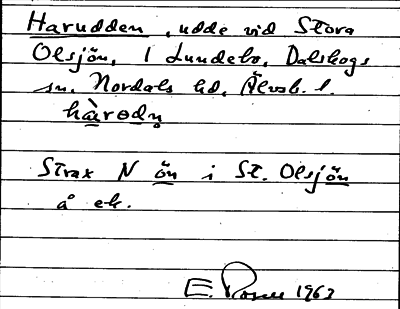 Harudden, udde vid Stora
Olsjön, 1 Lundebo, Dalskogs
sn. Nordals hd, Älvsb. l.
hàrødn̥
Strax N ön i St. Olsjön
å ek.
E. 1963